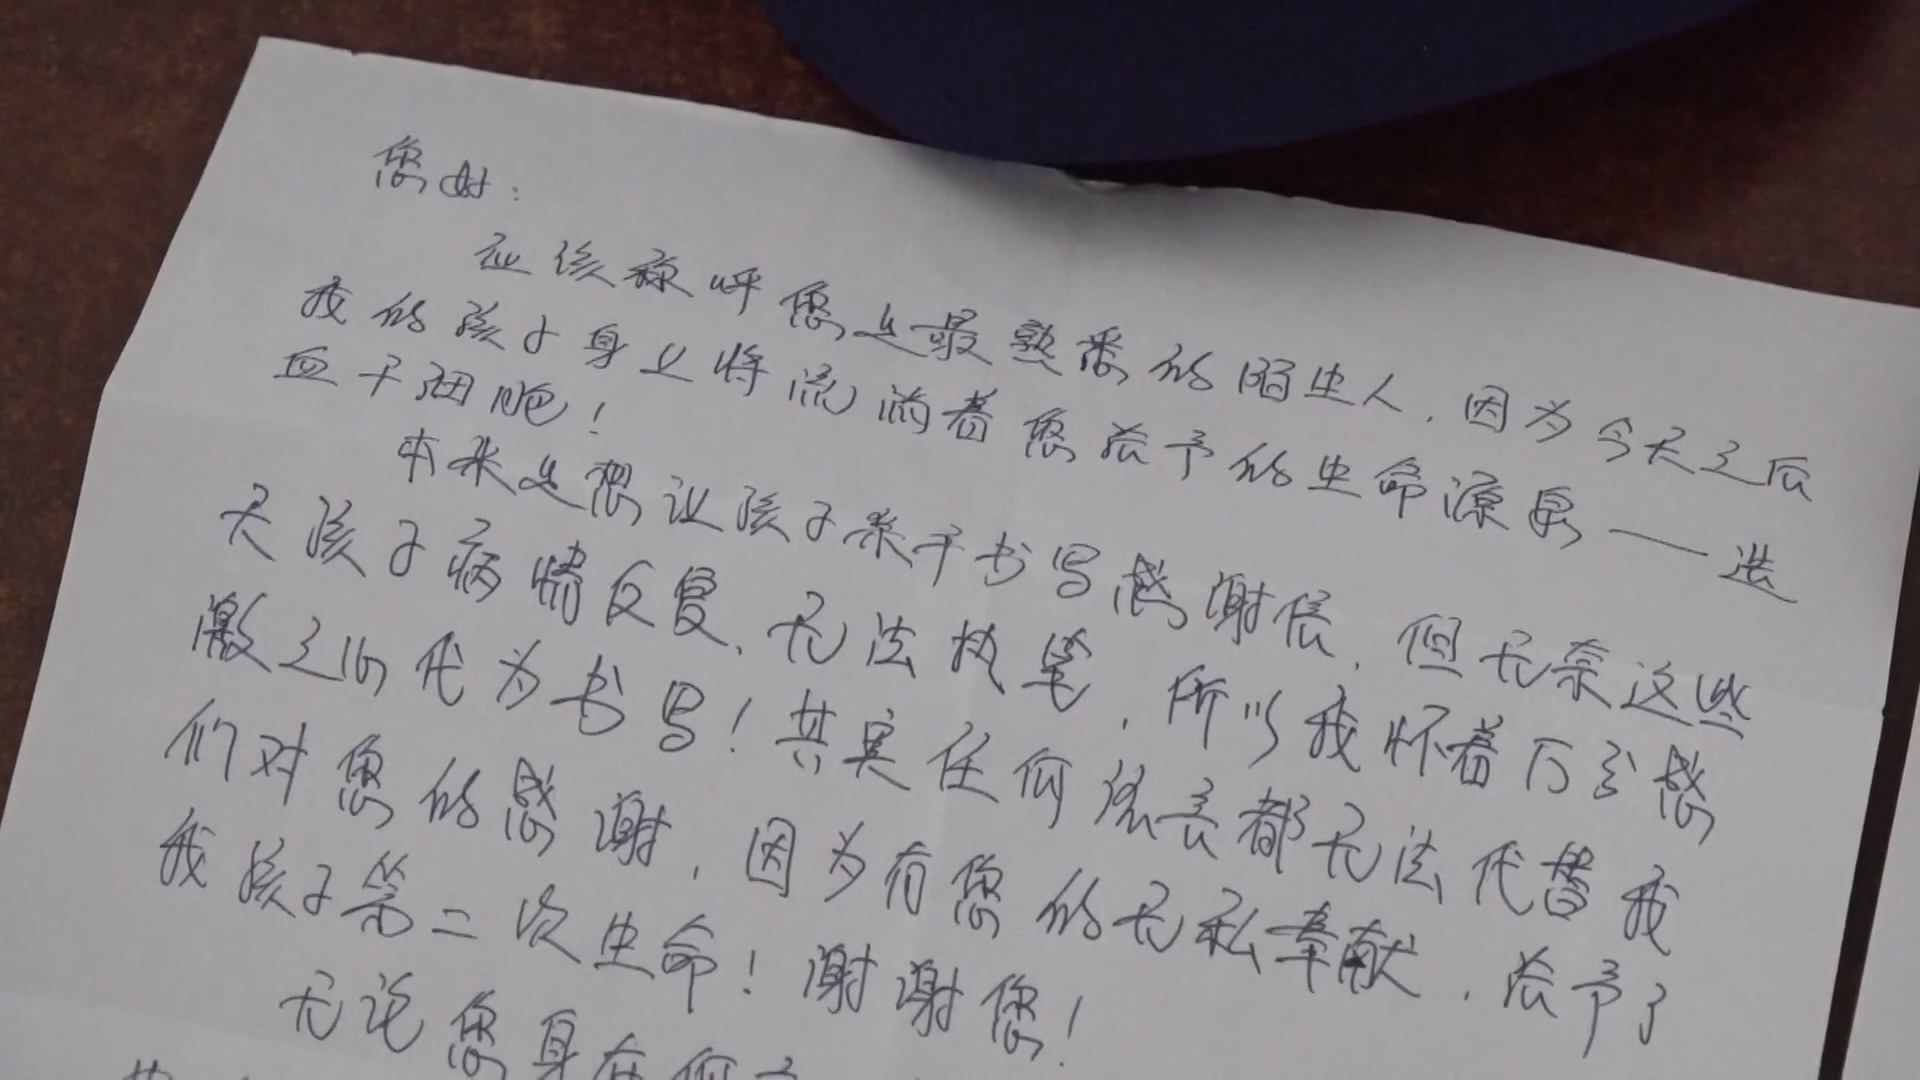 您好：
应该称呼您是最熟悉的陌生人，因为今天之后
我的孩子身上将流淌着您给予的生命源泉——造
血干细胞！
本来是想让孩子亲手书写感谢信，但无奈这些
天孩子病情反复，无法执笔，所以我怀着万分感
激之情代为书写！其实任何语言都无法代替我
们对您的感谢，因为有您的无私奉献，给予了
我孩子第二次生命！谢谢您！
无论您身在何方